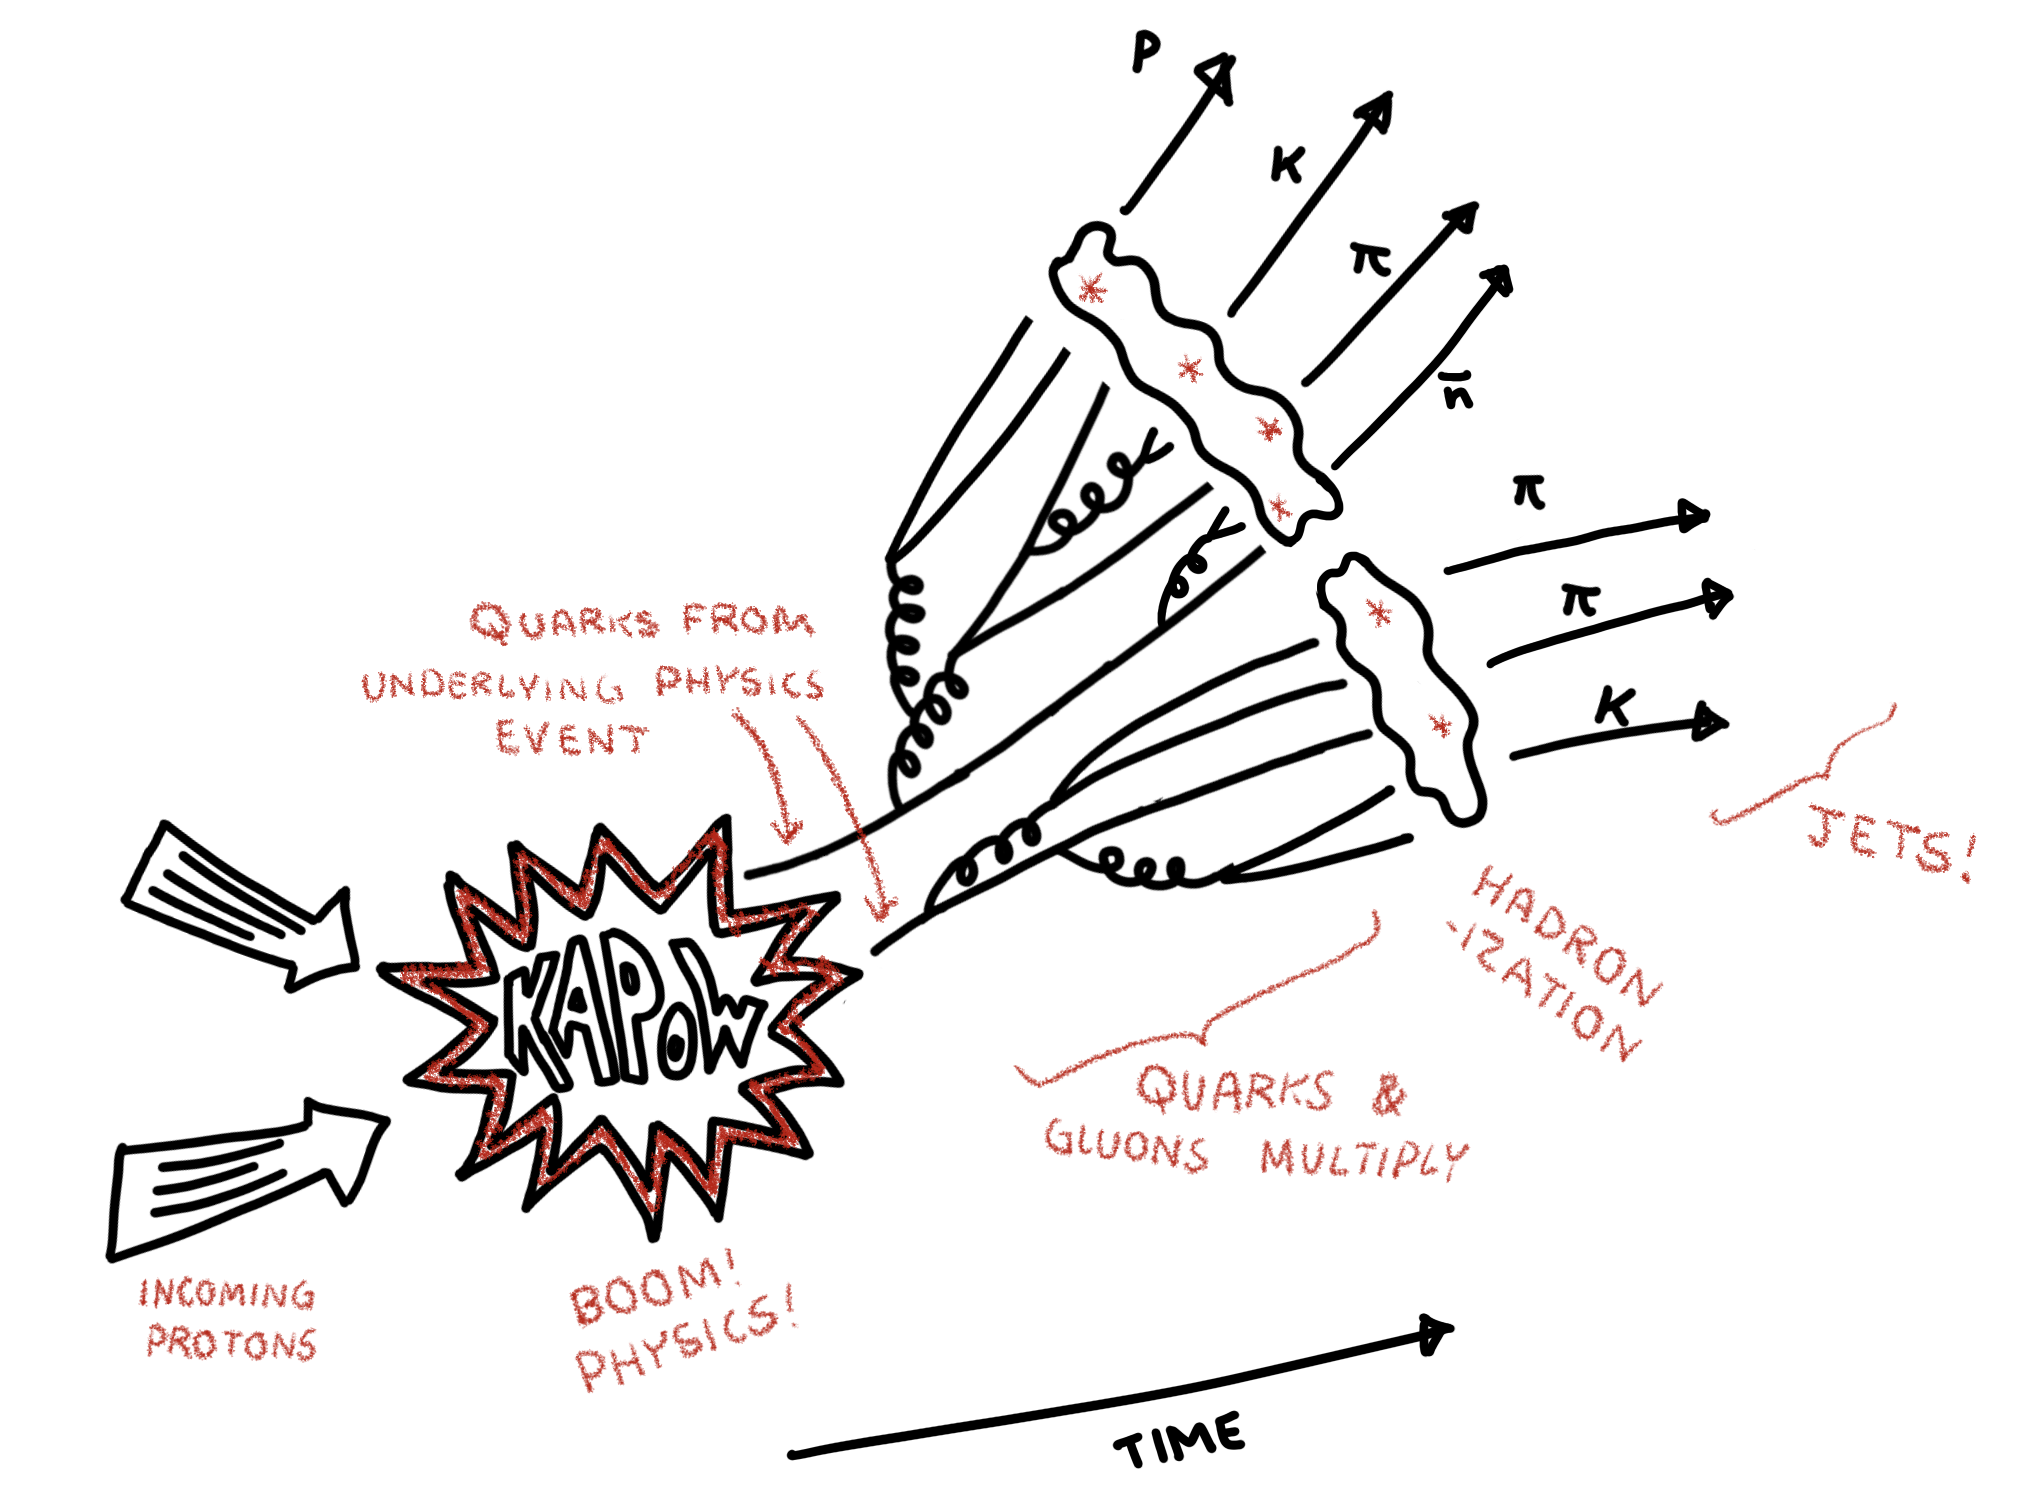 P
K
π
n̄
π
π
K
QUARKS FROM
UNDERLYING PHYSICS
EVENT
JETS!
HADRON
-IZATION
KAPOW
QUARKS &
GLUONS MULTIPLY
INCOMING
PROTONS
BOOM!
PHYSICS!
TIME